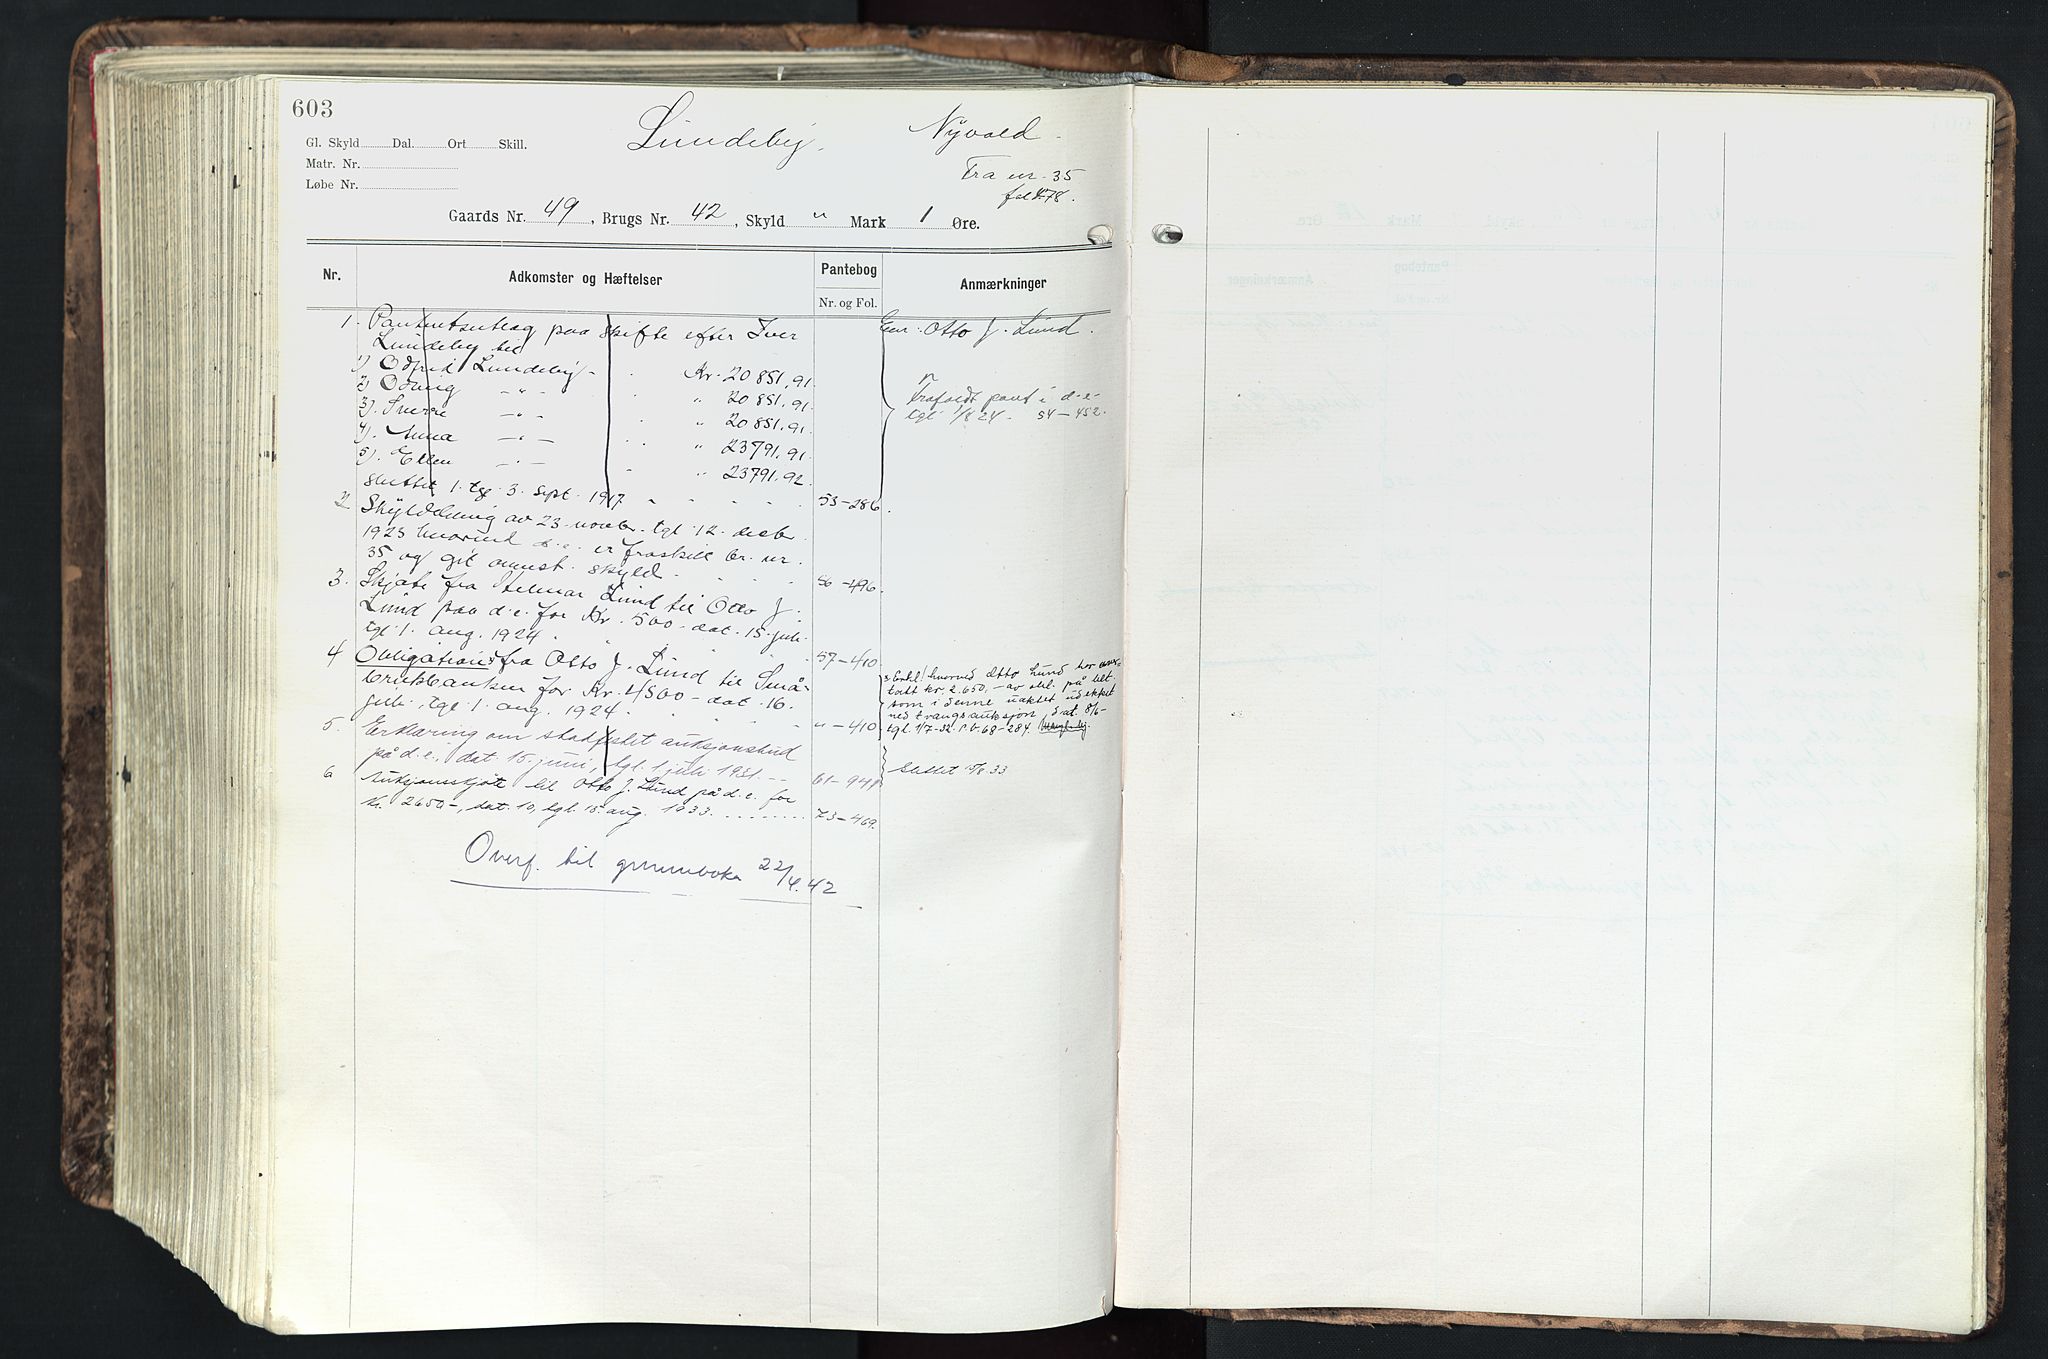 603
Lundeby. Nyvold
Gl. Skyld Dal. Ort Skill.
Matr. Nr.
Løbe Nr.
Fra nr. 35
fol 478.
Gaards Nr. 49, Brugs Nr. 42, Skyld " Mark 1 Øre.
Nr. Adkomster og Hæftelser Pantebog Anmærkninger
Nr. og Fol.
1. Panteutlæg paa skifte efter Iver
Lundeby til
1) Odfrid Lundeby - Kr. 20 851,91
2) Odvug - " - " 20 851,91.
3). Sverre - " - " 20 851,91.
4). Anna - " - " 23791,91
5). Ellen - " - " 23791,92
sluttet 1. tgl. 3. sept. 1917 53-286.
Em: Otto J. Lund.
Frafaldt pant i d.e.
tgl. 1/8 24 - 54-452.
2 Skylddeling av 23 novbr. tgl. 12. decbr.
1923 hvorved d.e. er fraskilt br. nr.
35 og git ovenst. skyld. 56-496.
3. Skjøte fra Helmar Lund til Otto J.
Lund paa d.e. for Kr. 500- dat. 15. juli
tgl. 1. aug. 1924. 57-410.
4 Obligation fra Otto J. Lund til Små-
brukbanken for Kr. 4500- dat. 16.
juli, tgl. 1. aug. 1924. " -410
Erkl. hvorved Otto Lund har over-
tatt kr. 2.650,- av obl. på
som i denne uaktet udekket
ved tvangsauksjon, dat. 8/6-
tgl. 1/7-32. P.b. 68-284.
5. Erklæring om stadfestet auksjonsbud
på d.e., dat. 15. juni, tgl. 1. juli 1931. 61-947
Slettet 15/8 33
6 Auksjonsskjøte til Otto J. Lund på d.e. for
kr. 2650-, dat. 10, tgl. 15. aug. 1933. 73-469.
Overf. til grunnboka 22/4.42